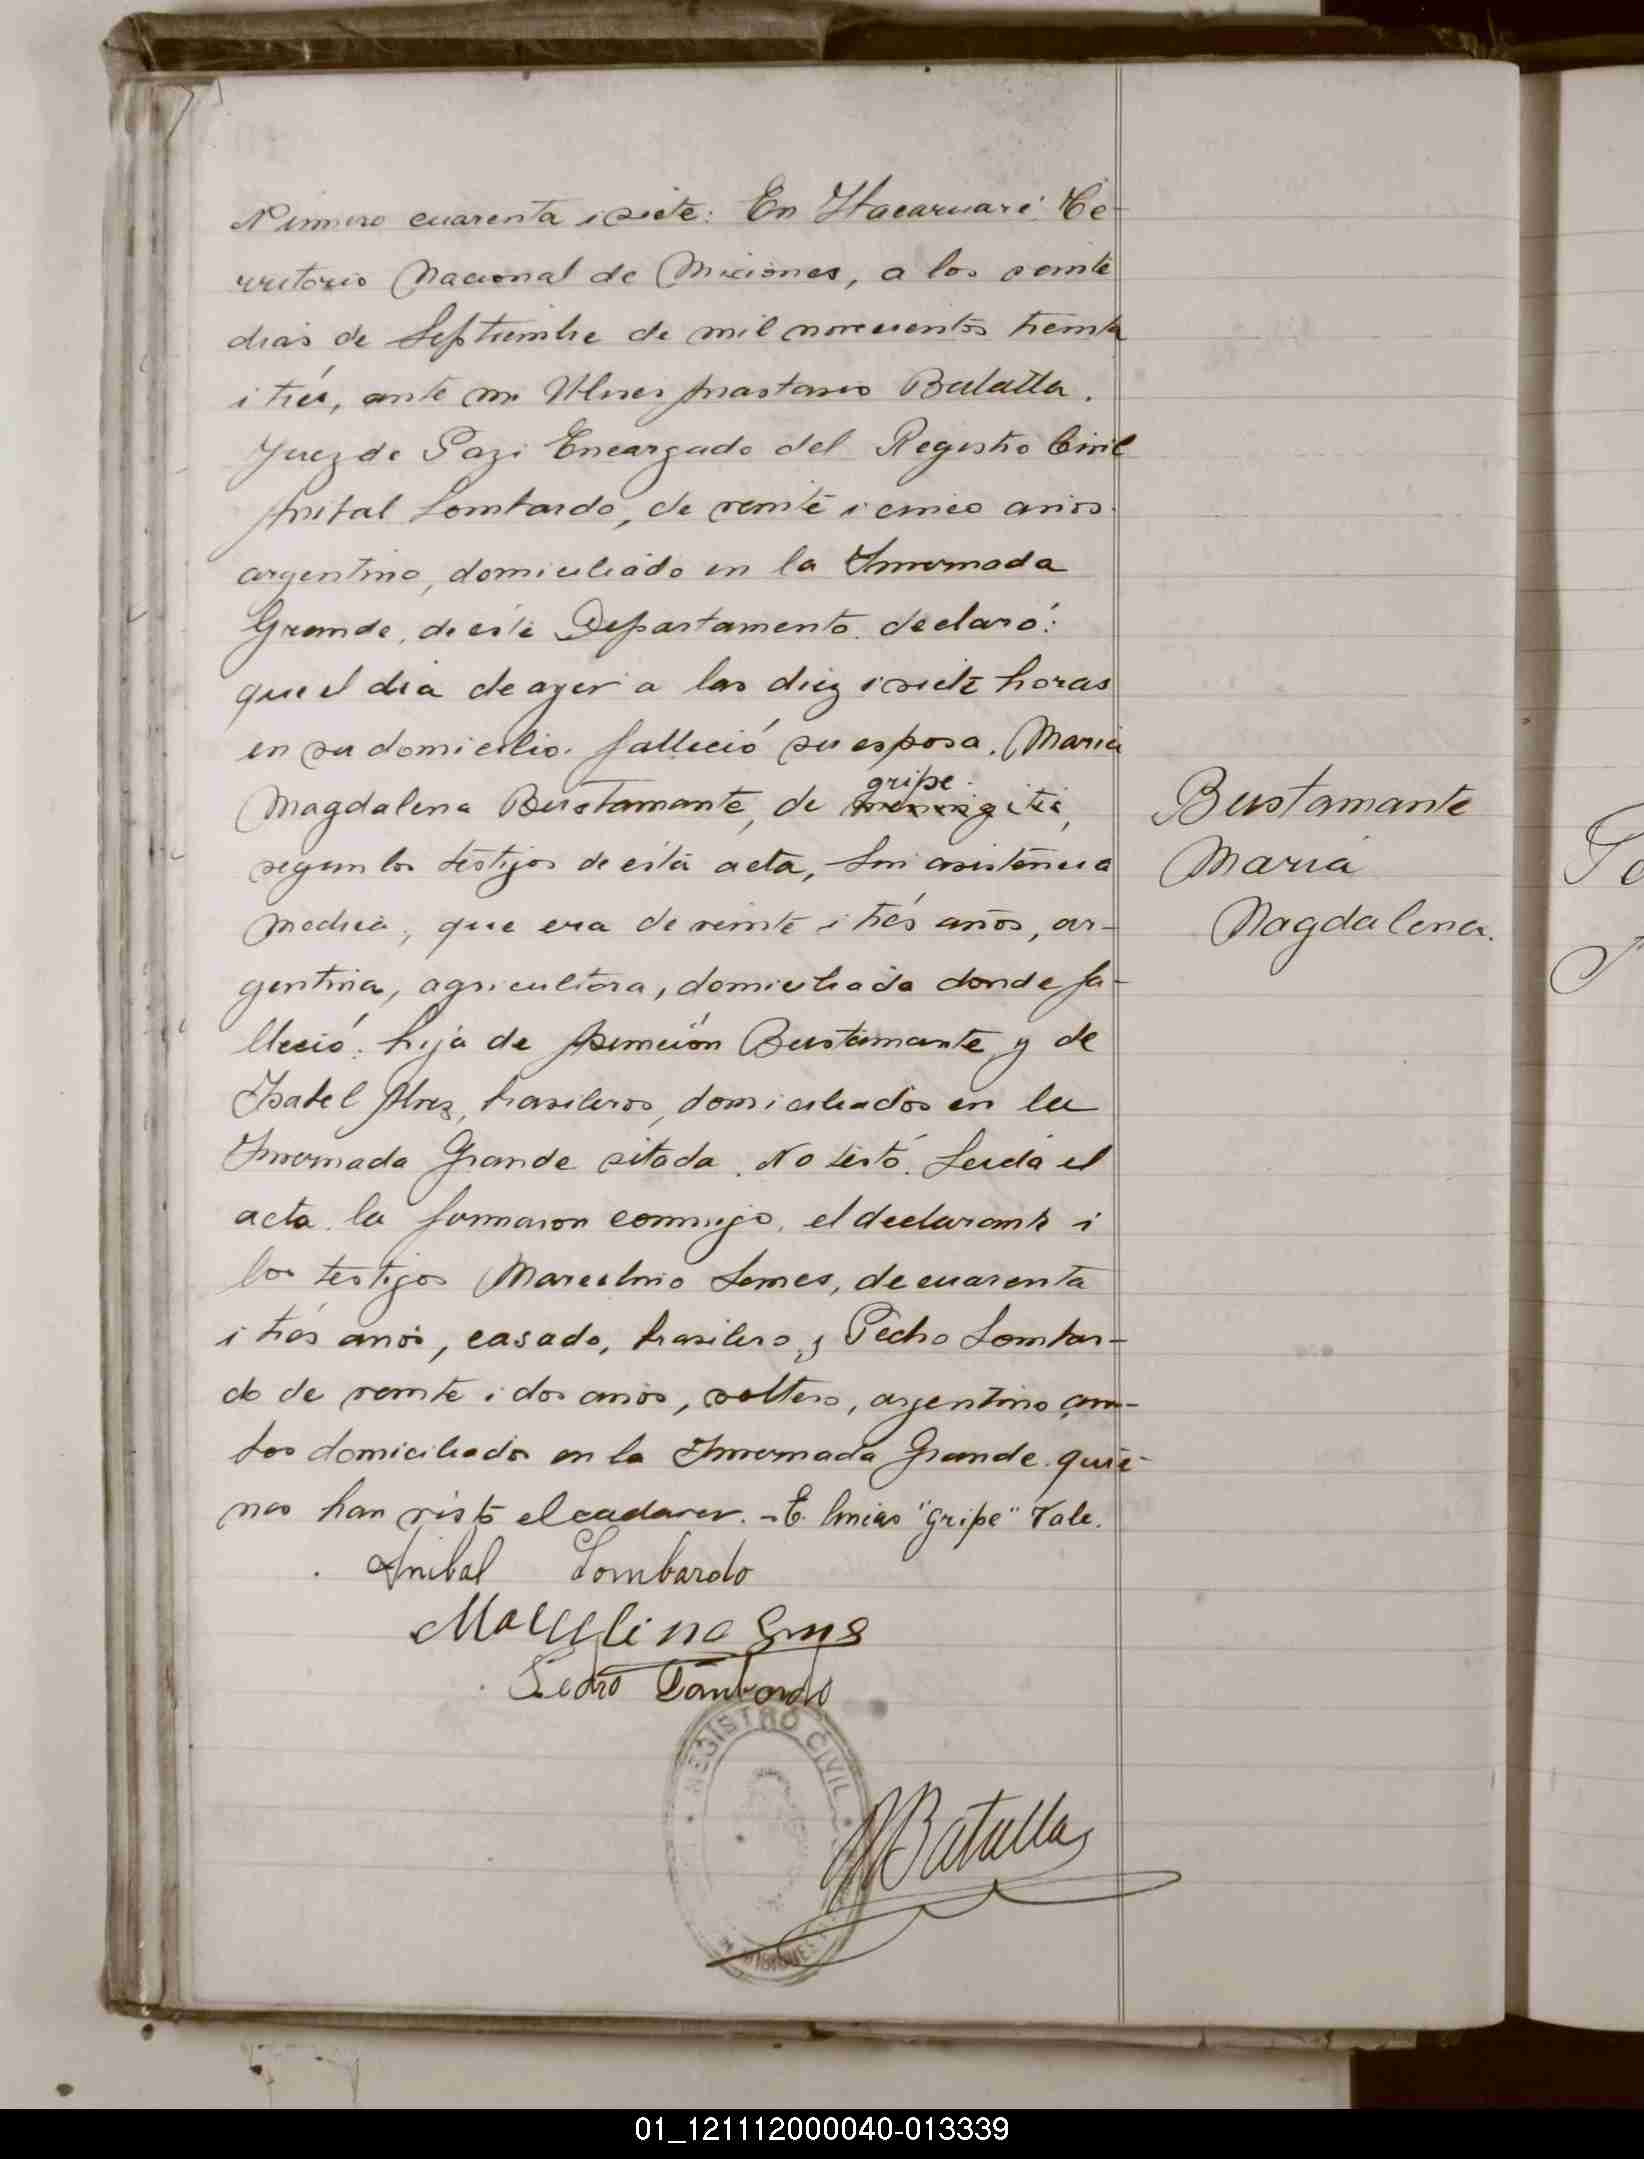 Número cuarenta i siete: En Itacaruaré Te-
rritorio Nacional de Misiones, a los veinte
dias de Septiembre de mil novecientos treinta
i trés, ante mi Ulises Anastasio Batalla.
Juez de Paz i Encargado del Registro Civil
Anibal Lombardo, de veinte i cinco años.
argentino, domiciliado en la Invernada
Grande, de éste Departamento. declaró:
que el dia de ayer a las diez i siete horas
en su domicilio. falleció su esposa. Maria
gripe
Magdalena Bustamante, de meningitis,
segun los testigos de ésta acta, sin asistencia
medica, que era de veinte i trés años, ar-
gentina, agricultora, domiciliada donde fa-
lleció: hija de Asunción Bustamante y de
Isabel Alvez, brasileros, domiciliados en la
Invernada Grande sitada. No testó. Leida el
acta. la firmaron conmigo, el declarante i
los testigos Marcelino Lemes, de cuarenta
i trés años, casado, brasilero, y Pedro Lombar-
do de veinte i dos años, soltero, argentino, am-
bos domiciliados en la Invernada Grande. quie-
nes han visto el cadaver. - E. linias "gripe" Vale.
Bustamante
Maria
Magdalena.
Anibal Lombardo
Marcelino Lemes
Pedro Lombardo
REGISTRO CIVIL
MISIONES
Batalla
01_121112000040-013339